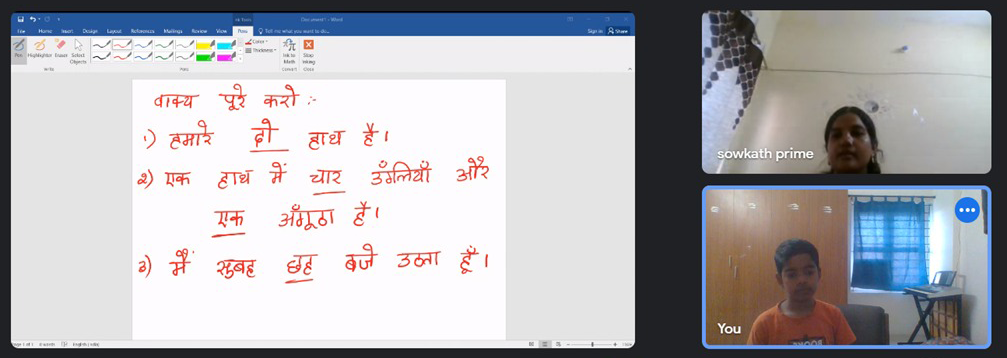 Document1 - Word
File Home Insert Design Layout References Mailings Review View Pens Tell me what you want to do...
Sign in Share
Pen Highlighter Eraser Select Objects
Color
Thickness
Ink to Math
Stop Inking
Write Pens Convert Close
वाक्य पूरे करो :-
१) हमारे दो हाथ है।
२) एक हाथ में चार उँगलियाँ और
एक अँगूठा है।
३) मैं सुबह छह बजे उठता हूँ।
sowkath prime
You